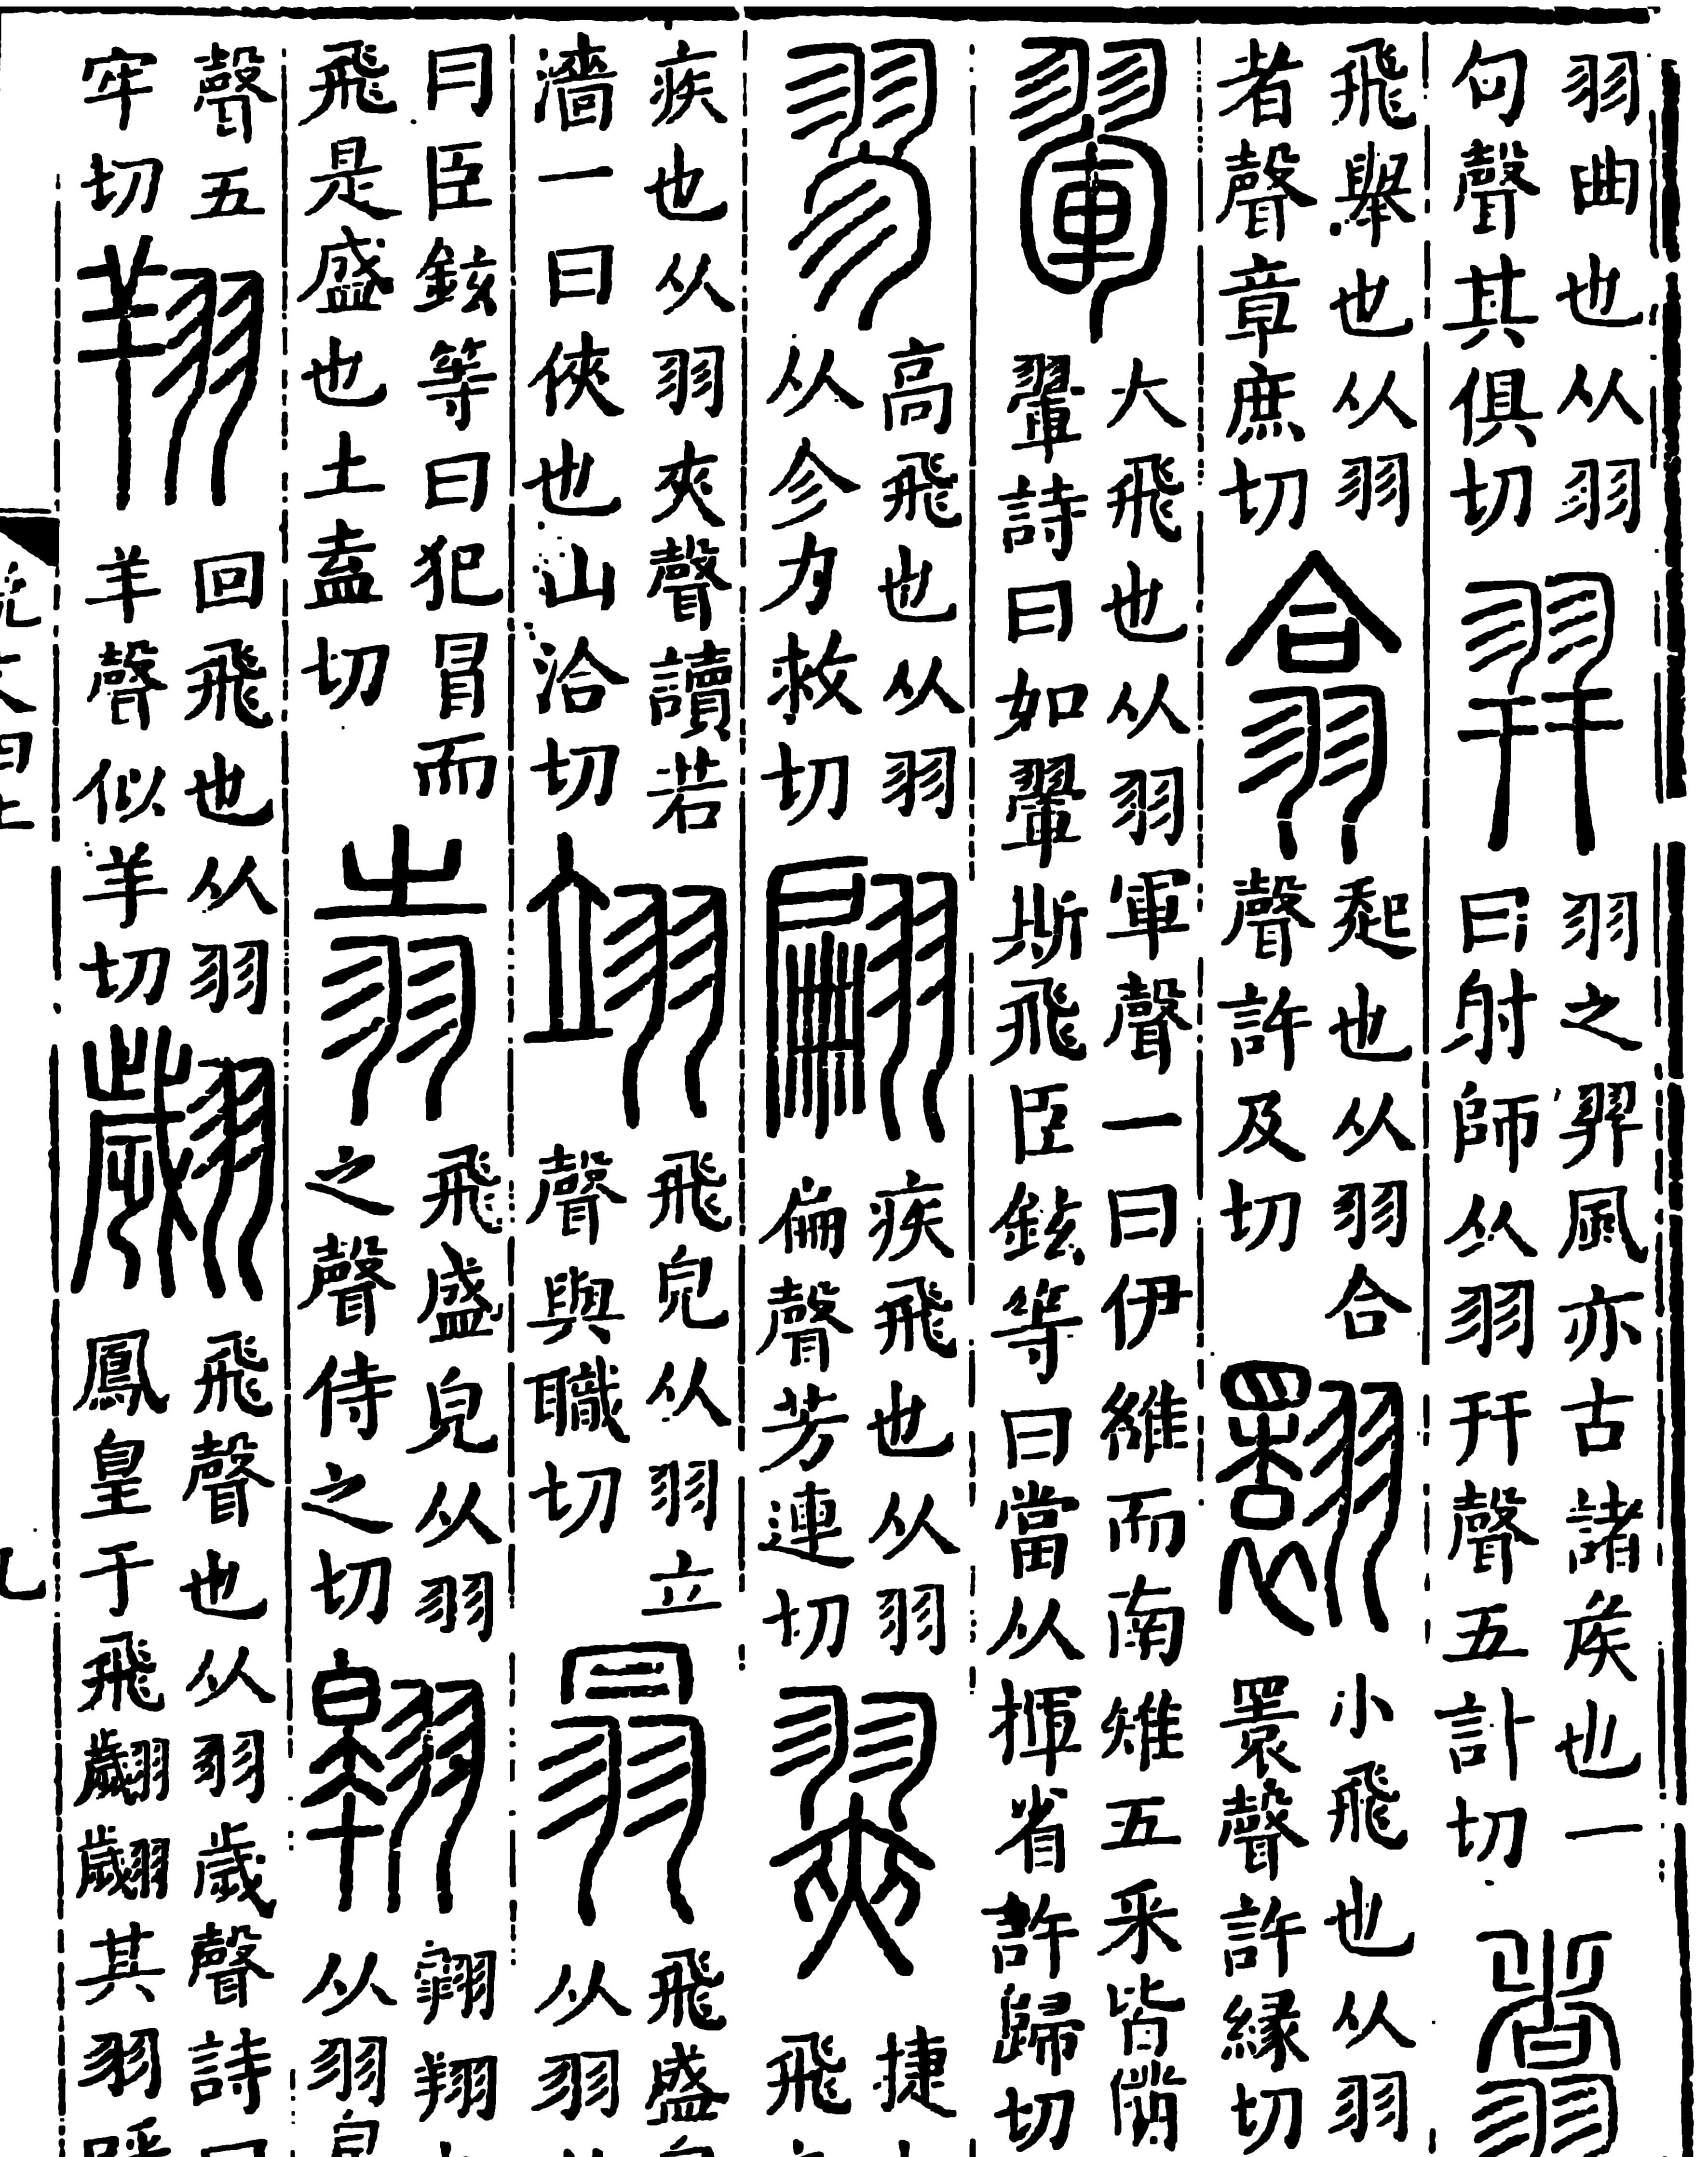 羽曲也从羽
句聲其俱切
羿
羽之羿風亦古諸矦也一
曰射師从羽幵聲五計切
翥
飛舉也从羽
者聲章庶切
翕
起也从羽合
聲許及切
翾
小飛也从羽
睘聲許緣切
翬
大飛也从羽軍聲一曰伊維而南雉五采皆備
翬詩曰如翬斯飛臣鉉等曰當从揮省許歸切
翏
高飛也从羽
从㐱力救切
翩
疾飛也从羽
扁聲芳連切
翜
捷
飛
疾也从羽夾聲讀若
濇一曰俠也山洽切
翊
飛皃从羽立
聲與職切
飛盛
从羽
冃臣鉉等曰犯冒而
飛是盛也土盍切
飛盛皃从羽
之聲侍之切
翱
翱翔
从羽
聲五
牢切
翔
回飛也从羽
羊聲似羊切
翽
飛聲也从羽歲聲詩
鳳皇于飛翽翽其羽